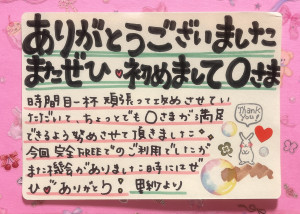 ありがとうございました
またぜひ♥初めまして〇さま
時間目一杯 頑張って攻めさせてい
ただいて、ちょっとでも〇さまが満足
できるよう努めさせて頂きました
今回 完全FREEでのご利用でしたが
また機会がありました時にはぜ
ひ♡ありがとう!
Thank you!